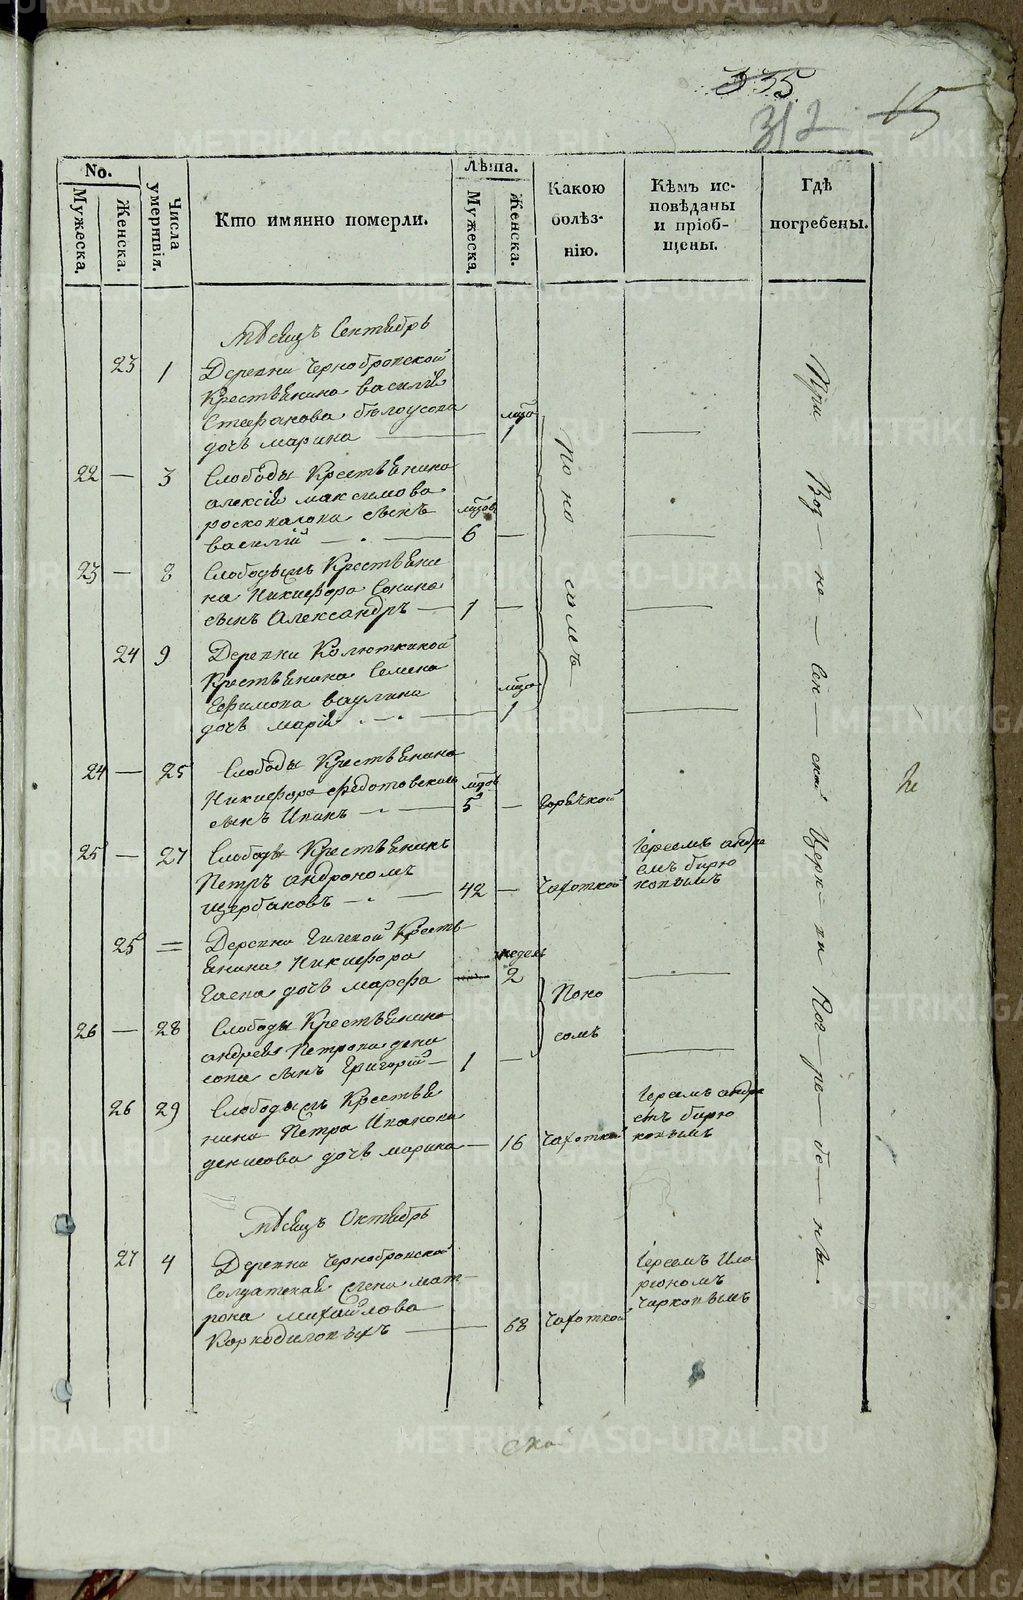 335
312
15
No.
Мужеска.
Женска.
Числа умертвія.
Кто имянно померли.
Лѣта.
Мужеска.
Женска.
Какою болѣз-нію.
Кѣмъ ис-повѣданы и пріоб-щены.
Гдѣ погребены.
Мѣсяцъ Сентябрь
23 1 Деревни Чернобровской
Крестьянина василія
Стефанова бѣлоусова
дочь марина 1
22 — 3 Слободы Крестьянина
алексія максимова
росковалова сынъ
василій 6 —
Поносомъ
23 — 8 Слободы Крестьяни
на Никифора Сонина
сынъ Александръ — 1 —
24 9 Деревни Колюткиной
Крестьянина Семена
Ефимова ваулина
дочь марія 1
24 — 25 Слободы Крестьянина
Никифора федотовскихъ
сынъ Иванъ 5 — Горячкой
25 — 27 Слободы Крестьянинъ
Петръ андроновъ
щербаковъ 42 — Чахоткой
Іереемъ андре
емъ бирю
ковымъ
25 = Деревни Гилевой Кресть
янина Никифора
Гаева дочь марфа недель 2
26 — 28 Слободы Крестьянина
андрея Петрова дени
сова сынъ Григорій — 1 —
Поно
сомъ
26 29 Слободы Крестья
нина Петра Иванова
денисова дочь марина — 16 Чахоткой
Іереемъ андре
емъ бирю
ковымъ
Мѣсяцъ Октябрь
27 4 Деревни Чернобровской
Солдатская жена мат-
рона михайлова
Коркодиловыхъ 68 Чахоткой
Іереемъ Ила
ріономъ
При Воз-не-сен-ской Церк-ви Пог-ре-бе-ны.
METRIKI.GASO-URAL.RU